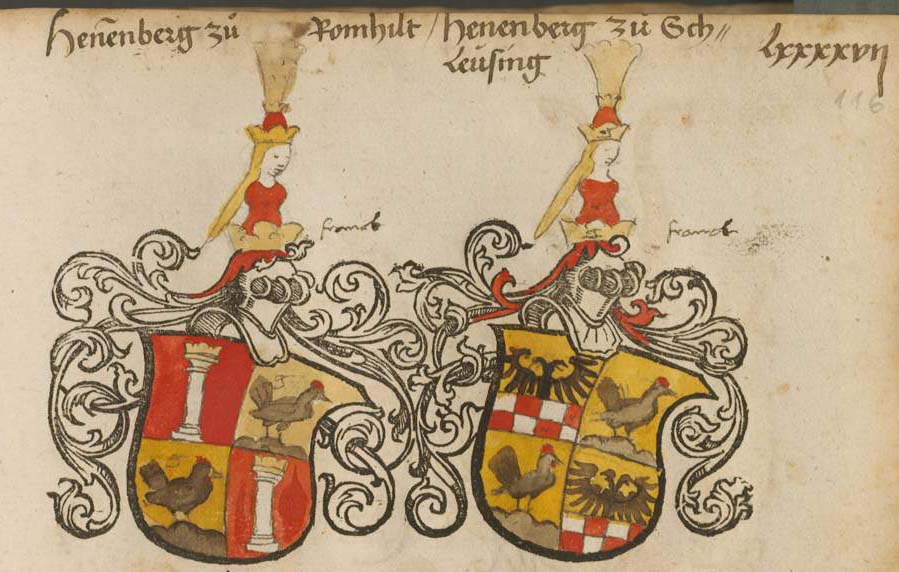 Heñenberg zů Romhilt / Henenberg zů Sch〃
Leüsing
Lxxxxvij
116
franck
franck